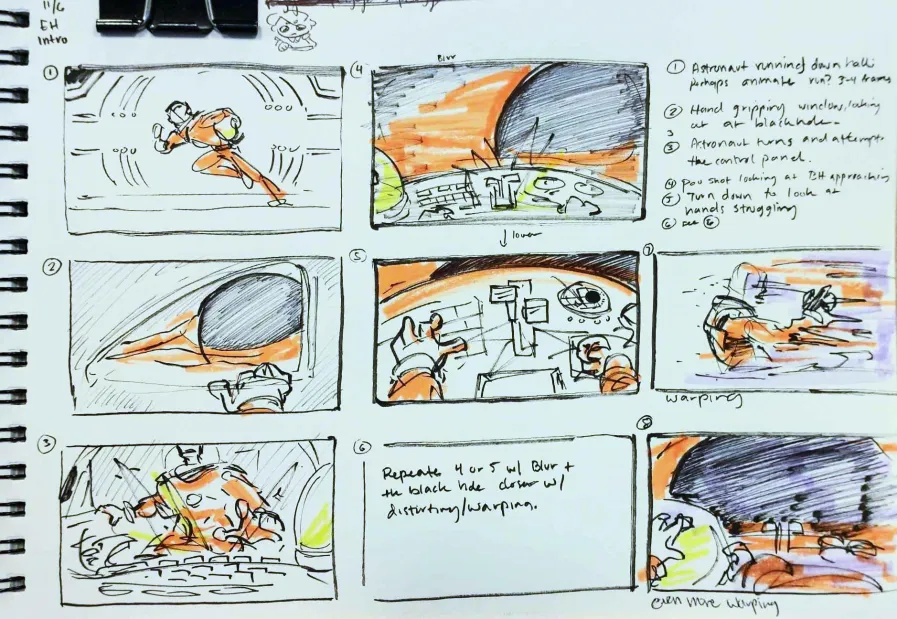 11/6
EH
Intro
① Astronaut running down hall
perhaps animate run? 3-4 frames
② Hand gripping window, looking
out at blackhole.
3
③ Astronaut turns and attempts
the control panel.
④ POV shot looking at BH approaching
⑤ Turn down to look at
hands struggling
⑥ see ⑥
①
④
Blur
↓ lower
②
⑤
⑦
warping
③
⑥
Repeate 4 or 5 w/ Blur +
the black hole closer w/
distorting/warping.
⑧
even more warping